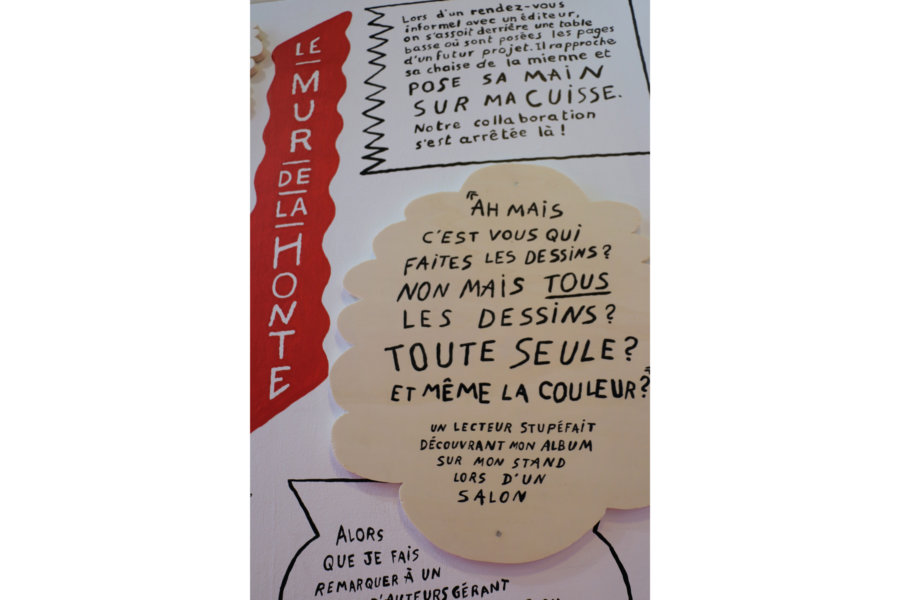 LE
MUR
DE
LA
HONTE
Lors d'un rendez-vous
informel avec un éditeur,
on s'assoit derrière une table
basse où sont posées les pages
d'un futur projet. Il rapproche
sa chaise de la mienne et
POSE SA MAIN
SUR MA CUISSE.
Notre collaboration
s'est arrêtée là !
"AH MAIS
C'EST VOUS QUI
FAITES LES DESSINS?
NON MAIS TOUS
LES DESSINS?
TOUTE SEULE?
ET MÊME LA COULEUR?"
UN LECTEUR STUPÉFAIT
DÉCOUVRANT MON ALBUM
SUR MON STAND
LORS D'UN
SALON
ALORS
QUE JE FAIS
REMARQUER À UN
D'AUTEURS GÉRANT